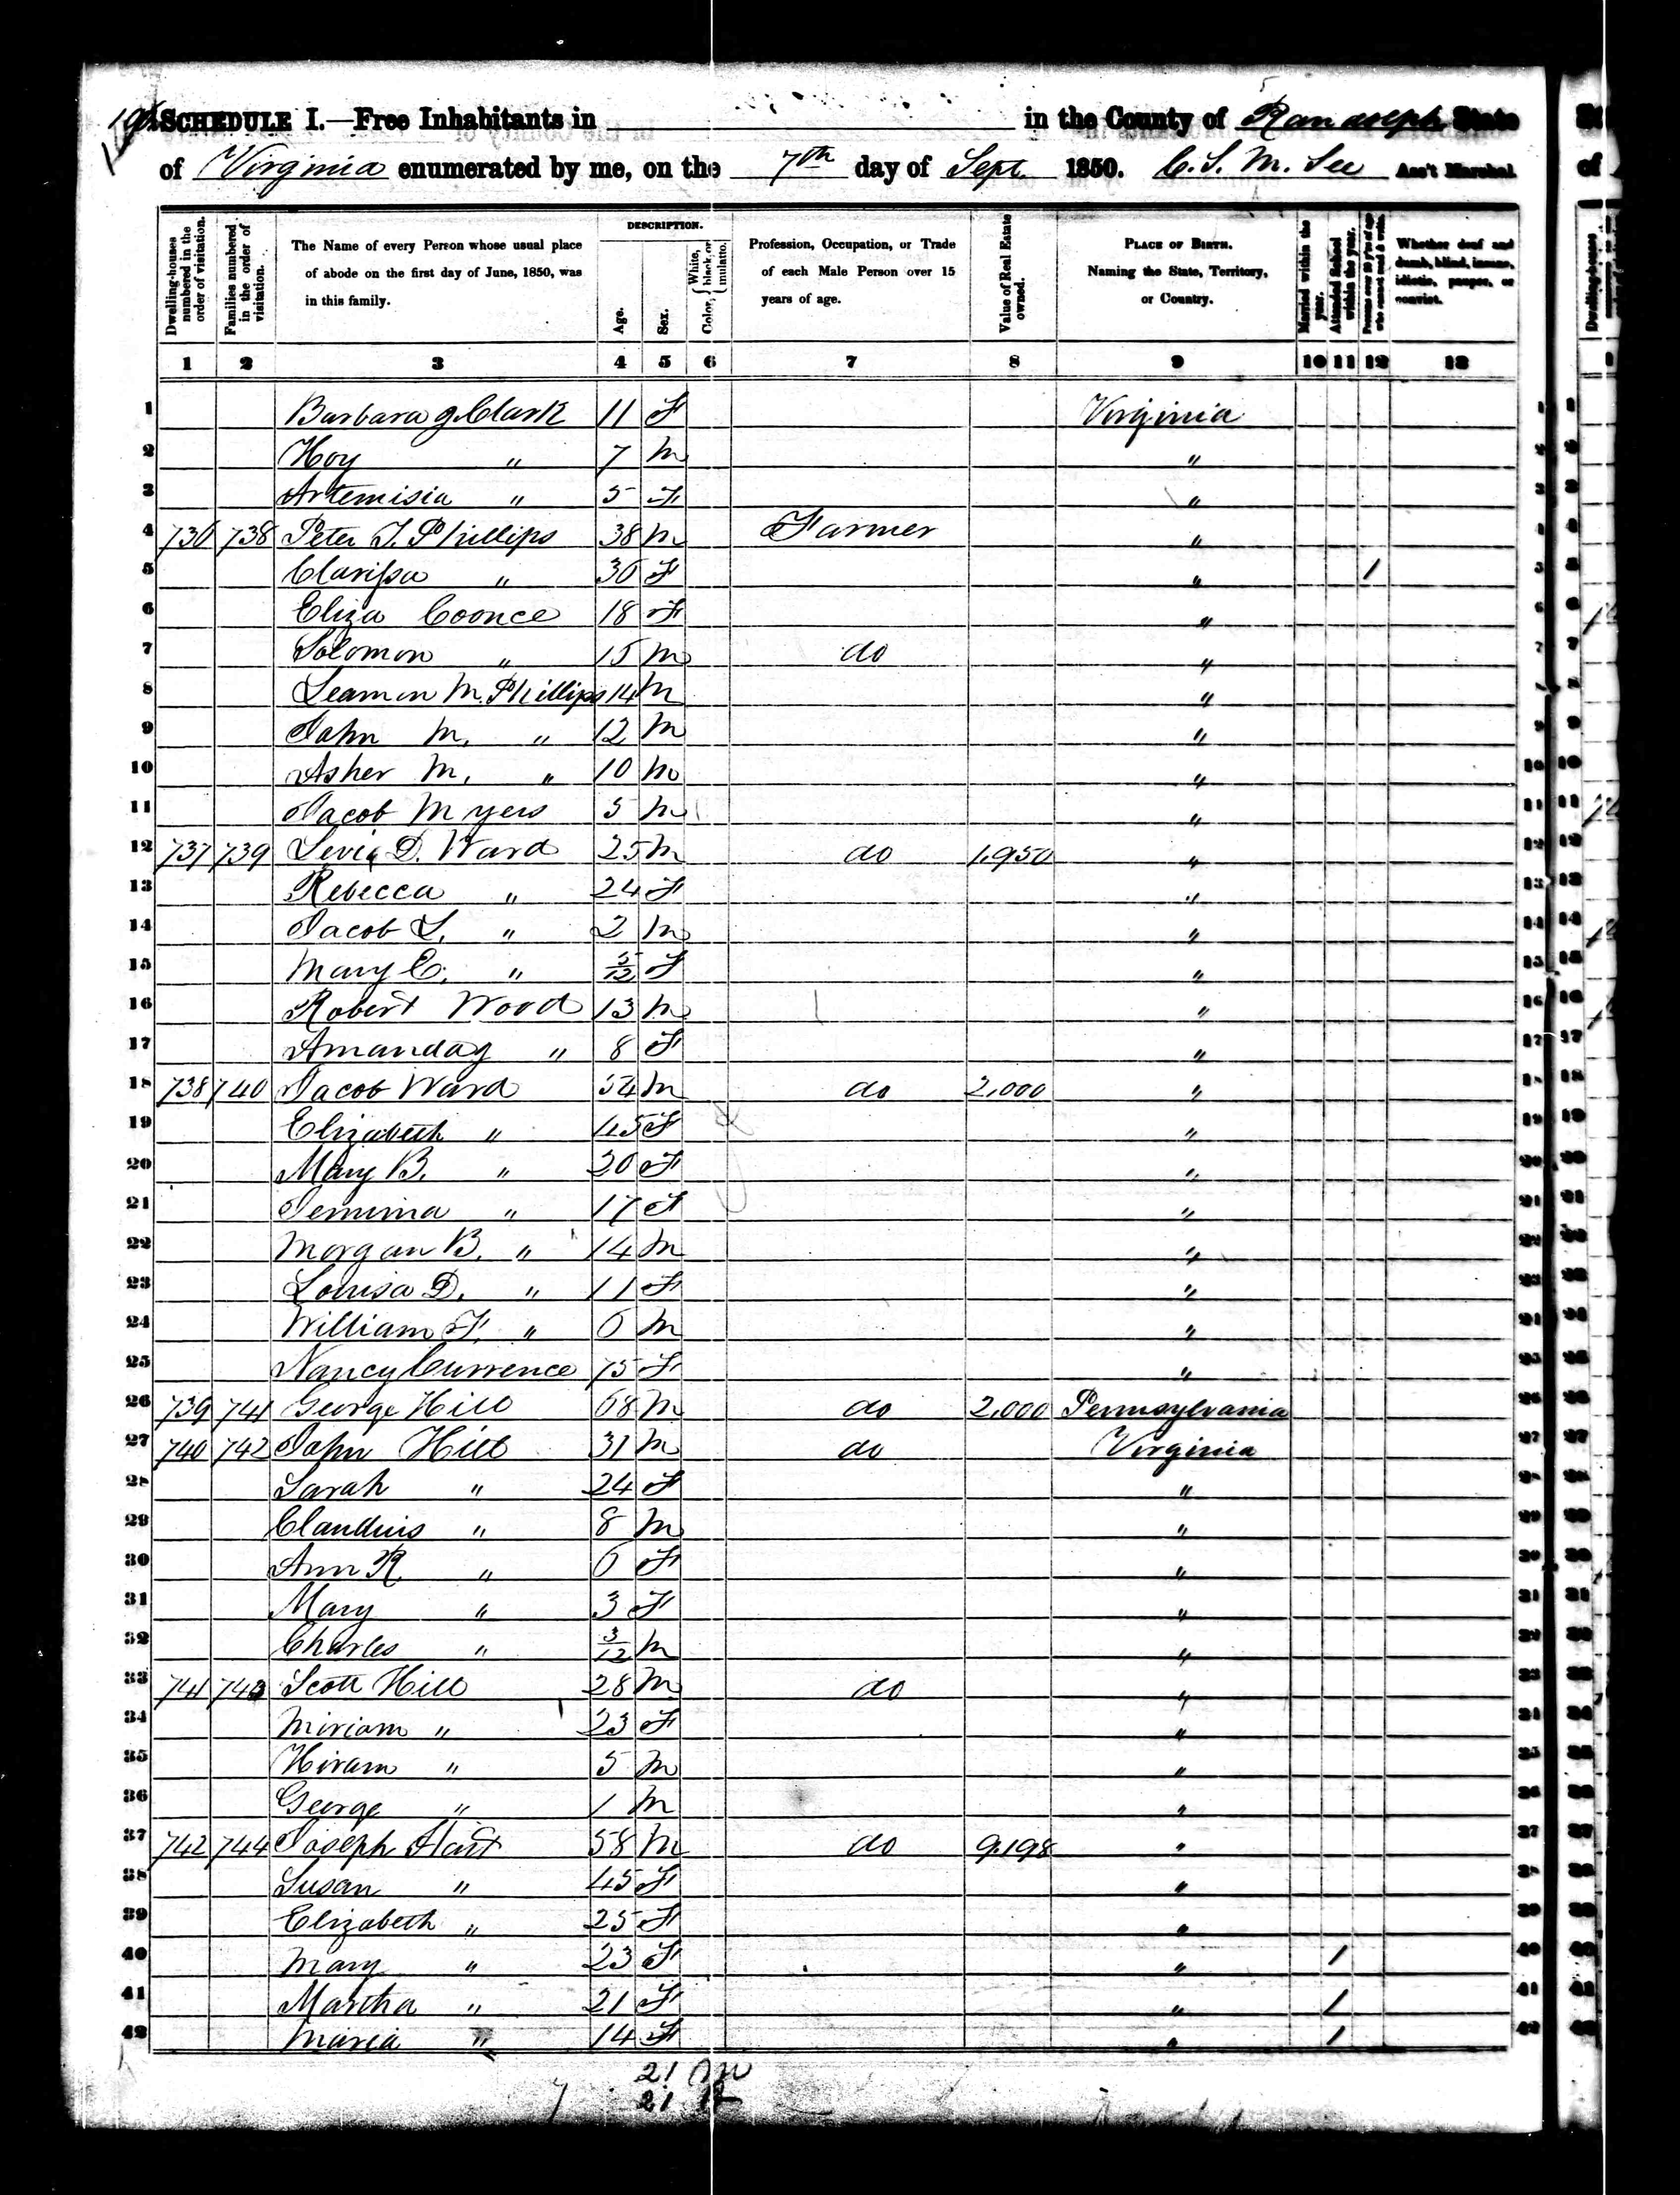 SCHEDULE I.—Free Inhabitants in in the County of Randolph State
of Virginia enumerated by me, on the 7th day of Sept. 1850. C. S. M. See Ass't Marshal.
Dwelling-houses numbered in the order of visitation.
Families numbered in the order of visitation.
The Name of every Person whose usual place of abode on the first day of June, 1850, was in this family.
DESCRIPTION.
Age.
Sex.
Color, White, black, or mulatto.
Profession, Occupation, or Trade of each Male Person over 15 years of age.
Value of Real Estate owned.
PLACE OF BIRTH. Naming the State, Territory, or Country.
Married within the year.
Attended School within the year.
Persons over 20 y'rs of age who cannot read & write.
Whether deaf and dumb, blind, insane, idiotic, pauper, or convict.
1 2 3 4 5 6 7 8 9 10 11 12 13
1 Barbara J. Clark 11 F Virginia 1
2 Hoy " 7 M " 2
3 Artemisia " 5 F " 3
4 736 738 Peter T. Phillips 38 M Farmer " 4
5 Clarissa " 30 F " 1 5
6 Eliza Coonce 18 F " 6
7 Solomon " 15 M do " 7
8 Leamon M. Phillips 14 M " 8
9 John M. " 12 M " 9
10 Asher M. " 10 M " 10
11 Jacob Myers 5 M " 11
12 737 739 Levi D. Ward 25 M do 1,950 " 12
13 Rebecca " 24 F " 13
14 Jacob L. " 2 M " 14
15 Mary C. " 5/12 F " 15
16 Robert Wood 13 M " 16
17 Amanda J " 8 F " 17
18 738 740 Jacob Ward 54 M do 2,000 " 18
19 Elizabeth " 45 F " 19
20 Mary B. " 20 F " 20
21 Jemima " 17 F " 21
22 Morgan B. " 14 M " 22
23 Louisa D. " 11 F " 23
24 William F. " 6 M " 24
25 Nancy Currence 75 F " 25
26 739 741 George Hill 68 M do 2,000 Pennsylvania 26
27 740 742 John Hill 31 M do Virginia 27
28 Sarah " 24 F " 28
29 Claudius " 8 M " 29
30 Ann R. " 6 F " 30
31 Mary " 3 F " 31
32 Charles " 3/12 M " 32
33 741 743 Scott Hill 28 M do " 33
34 Miriam " 23 F " 34
35 Hiram " 5 M " 35
36 George " 1 M " 36
37 742 744 Joseph Hart 58 M do 9,198 " 37
38 Susan " 45 F " 38
39 Elizabeth " 25 F " 39
40 Mary " 23 F " 1 40
41 Martha " 21 F " 1 41
42 Maria " 14 F " 1 42
21 M
21 F